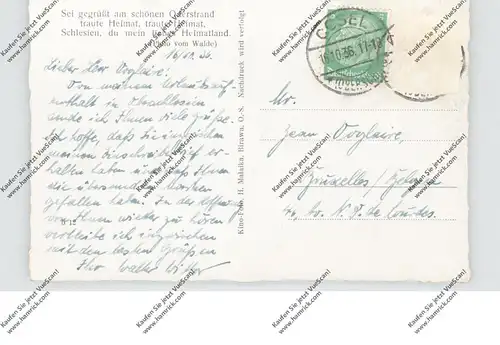 Sei gegrüßt am schönen Oderstrand
traute Heimat, traute Heimat,
Schlesien, du mein liebes Heimatland.
vom Walde)
16/10. 36.
Lieber Herr Voglaire,
Von meinem Urlaubsauf-
enthalt in Oberschlesien
sende ich Ihnen viele Grüße.
Ich hoffe, daß Sie inzwischen
meinen Einschreibebrief er-
halten haben und daß Ihnen
die übersandten Marken
gefallen haben. In der Hoffnung
von Ihnen wieder zu hören
verbleibe ich inzwischen
mit den besten Grüßen
Ihr Walter
K 12
Kino-Foto H. Mohaika, Birawa, O.-S. Nachdruck wird verfolgt
COSEL
16.10.36. 17-18
Mr.
Jean Voglaire,
Bruxelles / Belgien
Av. N. D. de Lourdes.
Kaufen Sie jetzt VueScan!
www.hamrick.com